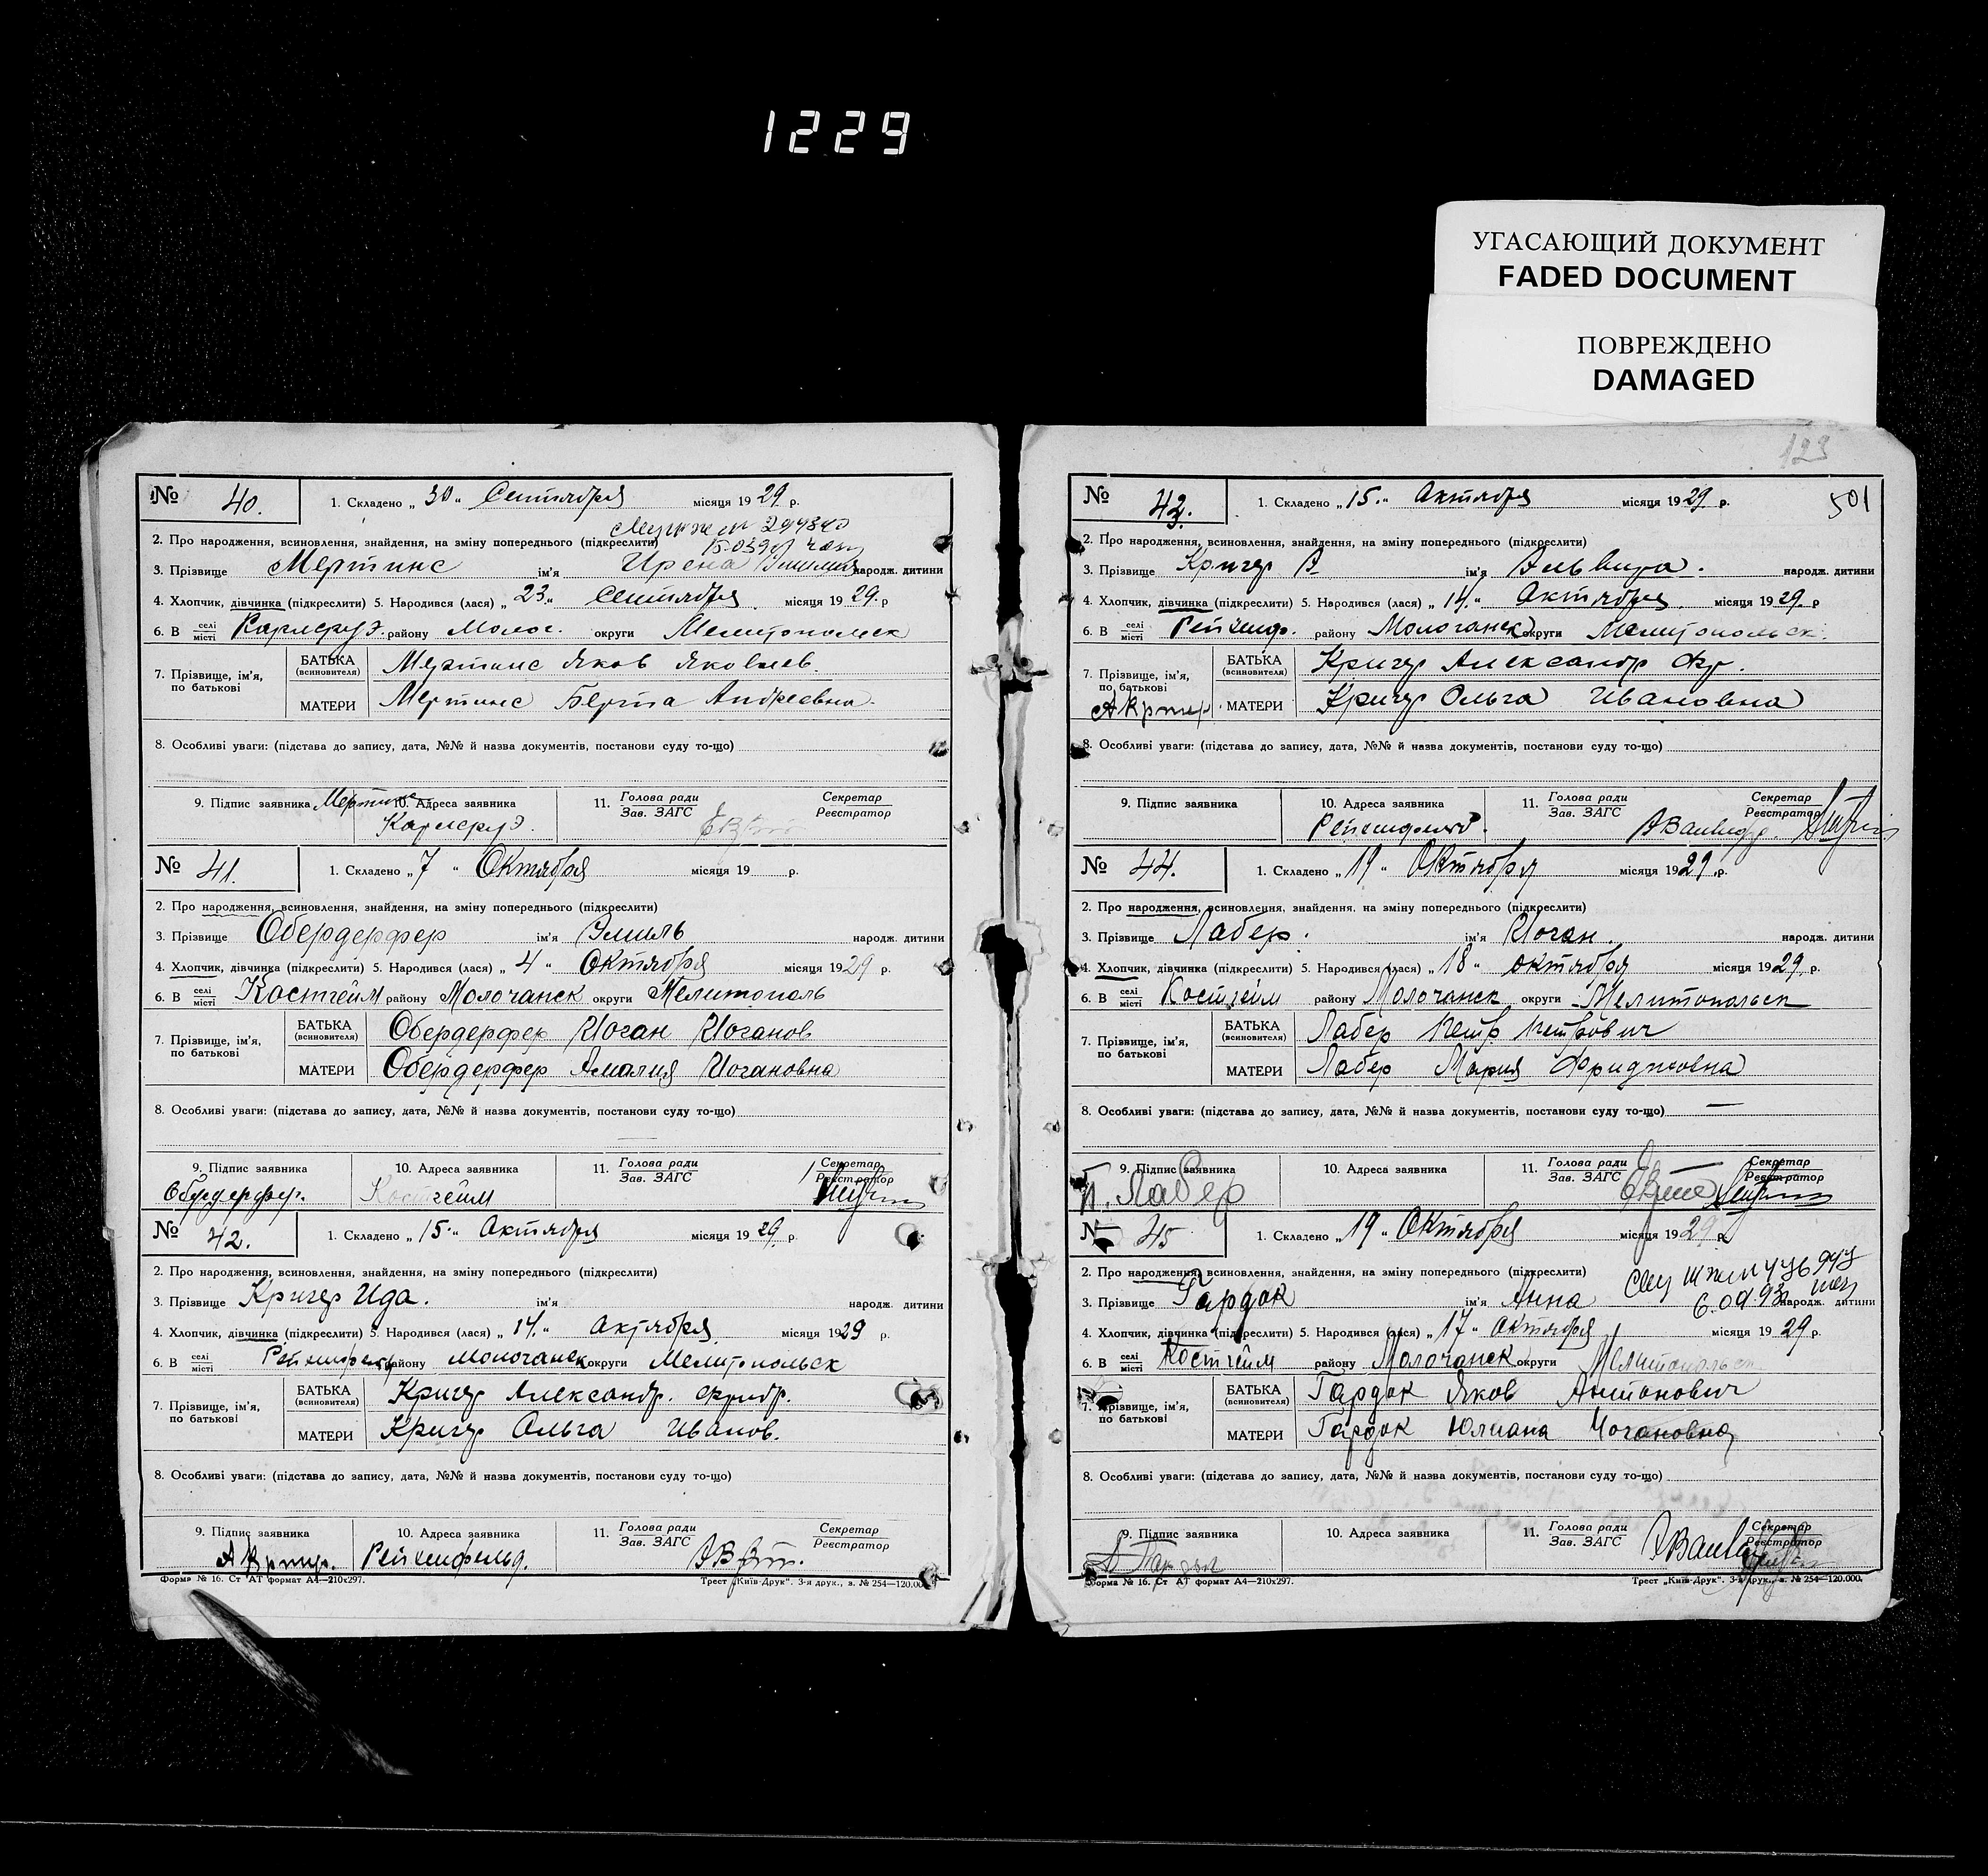 1229
УГАСАЮЩИЙ ДОКУМЕНТ
FADED DOCUMENT
ПОВРЕЖДЕНО
DAMAGED
№ 40. 1. Складено „ 30 “ Сентября місяця 19 29 р.
2. Про народження, всиновлення, знайдення, на зміну попереднього (підкреслити)
3. Прізвище Мертинс ім'я Ирена народж. дитини
4. Хлопчик, дівчинка (підкреслити) 5. Народився (лася) „ 23 “ Сентября місяця 19 29. р
6. В селі місті Карлсруэ. району Молоч. округи Мелитопольск
7. Прізвище, ім'я, по батькові БАТЬКА (всиновителя) Мертинс Яков Яковлев.
МАТЕРИ Мертинс Берта Андреевна.
8. Особливі уваги: (підстава до запису, дата, №№ й назва документів, постанови суду то-що)
9. Підпис заявника Мертинс 10. Адреса заявника Карлсруэ. 11. Голова ради Зав. ЗАГС Секретар Реєстратор
№ 41. 1. Складено „ 7 “ Октября місяця 19 р.
2. Про народження, всиновлення, знайдення, на зміну попереднього (підкреслити)
3. Прізвище Обердерфер ім'я Эмиль народж. дитини
4. Хлопчик, дівчинка (підкреслити) 5. Народився (лася) „ 4 “ Октября місяця 19 29 р.
6. В селі місті Костгейм району Молочанск округи Мелитополь
7. Прізвище, ім'я, по батькові БАТЬКА (всиновителя) Обердерфер Иоган Иоганов
МАТЕРИ Обердерфер Амалия Иогановна
8. Особливі уваги: (підстава до запису, дата, №№ й назва документів, постанови суду то-що)
9. Підпис заявника Обердерфер. 10. Адреса заявника Костгейм 11. Голова ради Зав. ЗАГС Секретар Реєстратор
№ 42. 1. Складено „ 15 “ Октября місяця 19 29 р.
2. Про народження, всиновлення, знайдення, на зміну попереднього (підкреслити)
3. Прізвище Кригер Ида. ім'я народж. дитини
4. Хлопчик, дівчинка (підкреслити) 5. Народився (лася) „ 14. “ Октября місяця 19 29 р.
6. В селі місті Рейхенфельд району Молочанск округи Мелитопольск
7. Прізвище, ім'я, по батькові БАТЬКА (всиновителя) Кригер Александр. Фридр.
МАТЕРИ Кригер Ольга Иванов.
8. Особливі уваги: (підстава до запису, дата, №№ й назва документів, постанови суду то-що)
9. Підпис заявника А Кригер. 10. Адреса заявника Рейхенфельд. 11. Голова ради Зав. ЗАГС Секретар Реєстратор
Форма № 16. Ст АТ формат А4—210х297. Трест „Київ-Друк". 3-я друк., з. № 254—120.000.
123
501
№ 43. 1. Складено „ 15. “ Октября місяця 19 29 р.
2. Про народження, всиновлення, знайдення, на зміну попереднього (підкреслити)
3. Прізвище Кригер ім'я Эльвира. народж. дитини
4. Хлопчик, дівчинка (підкреслити) 5. Народився (лася) „ 14. “ Октября місяця 19 29. р
6. В селі місті Рейхенф. району Молочанск округи Мелитопольск.
7. Прізвище, ім'я, по батькові БАТЬКА (всиновителя) Кригер Александр Фр.
А Кригер МАТЕРИ Кригер Ольга Ивановна
8. Особливі уваги: (підстава до запису, дата, №№ й назва документів, постанови суду то-що)
9. Підпис заявника 10. Адреса заявника Рейхенфельд. 11. Голова ради Зав. ЗАГС Секретар Реєстратор
№ 44. 1. Складено „ 19 “ Октября місяця 19 29 р.
2. Про народження, всиновлення, знайдення, на зміну попереднього (підкреслити)
3. Прізвище Лабер. ім'я Иоган. народж. дитини
4. Хлопчик, дівчинка (підкреслити) 5. Народився (лася) „ 18 “ октября місяця 19 29. р.
6. В селі місті Костгейм району Молочанск округи Мелитопольск
7. Прізвище, ім'я, по батькові БАТЬКА (всиновителя) Лабер Петр Петрович
МАТЕРИ Лабер Мария
8. Особливі уваги: (підстава до запису, дата, №№ й назва документів, постанови суду то-що) —
9. Підпис заявника П. Лабер 10. Адреса заявника 11. Голова ради Зав. ЗАГС Секретар Реєстратор
№ 45 1. Складено „ 19 “ Октября місяця 19 29 р.
2. Про народження, всиновлення, знайдення, на зміну попереднього (підкреслити)
3. Прізвище Гардок ім'я Анна народж. дитини
4. Хлопчик, дівчинка (підкреслити) 5. Народився (лася) „ 17 “ Октября місяця 19 29 р.
6. В селі місті Костгейм району Молочанск округи Мелитопольск
7. Прізвище, ім'я, по батькові БАТЬКА (всиновителя) Гардок Яков Антонович
МАТЕРИ Гардок Юлиана Иогановна
8. Особливі уваги: (підстава до запису, дата, №№ й назва документів, постанови суду то-що)
9. Підпис заявника 10. Адреса заявника 11. Голова ради Зав. ЗАГС Секретар Реєстратор
Форма № 16. Ст АТ формат А4—210х297. Трест „Київ-Друк". 3-я друк., з. № 254—120.000.